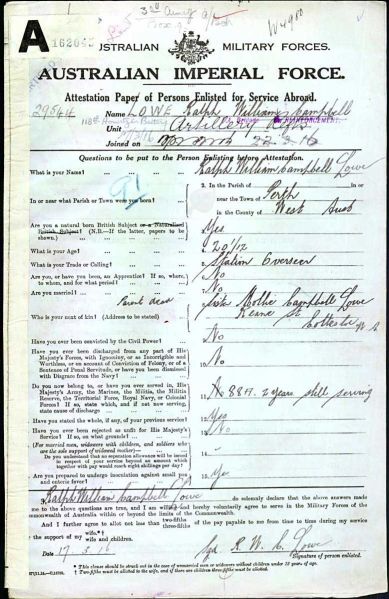 3rd
A
AUSTRALIAN MILITARY FORCES.
AUSTRALIAN IMPERIAL FORCE.
Attestation Paper of Persons Enlisted for Service Abroad.
29544 Name LOWE Ralph William Campbell
Unit Artillery REINFORCEMENT
Joined on 22.2.16
Questions to be put to the Person Enlisting before Attestation.
What is your Name? ... Ralph William Campbell Lowe
In or near what Parish or Town were you born? ... 2. In the Parish of in or
near the Town of Perth
in the County of West Aust
Are you a natural born British Subject or a Naturalised British Subject? (N.B.—If the latter, papers to be shown.) Yes
What is your Age? ... 20
What is your Trade or Calling? ... Station Overseer
Are you, or have you been, an Apprentice? If so, where, to whom, and for what period? No
Are you married? ... No
Parents dead
Who is your next of kin? (Address to be stated) Mollie Campbell Lowe
Keane St
Cottesloe
Have you ever been convicted by the Civil Power? No
Have you ever been discharged from any part of His Majesty's Forces, with Ignominy, or as Incorrigible and Worthless, or on account of Conviction of Felony, or of a Sentence of Penal Servitude, or have you been dismissed with Disgrace from the Navy? No
Do you now belong to, or have you ever served in, His Majesty's Army, the Marines, the Militia, the Militia Reserve, the Territorial Force, Royal Navy, or Colonial Forces? If so, state which, and if not now serving, state cause of discharge 2 years still serving
Have you stated the whole, if any, of your previous service? Yes
Have you ever been rejected as unfit for His Majesty's Service? If so, on what grounds? No
(For married men, widowers with children, and soldiers who are the sole support of widowed mother—
Do you understand that no separation allowance will be issued in respect of your service beyond an amount which together with pay would reach eight shillings per day? -
Are you prepared to undergo inoculation against small pox and enteric fever? Yes
Ralph William Campbell Lowe do solemnly declare that the above answers made
me to the above questions are true, and I am willing and hereby voluntarily agree to serve in the Military Forces of the
Commonwealth of Australia within or beyond the limits of the Commonwealth.
And I further agree to allot not less than two-fifths three-fifths of the pay payable to me from time to time during my service
the support of my wife.* wife and children.
Date 17.5.16 Sgd. R. W. C. Lowe
Signature of person enlisted.
* This clause should be struck out in the case of unmarried men or widowers without children under 18 years of age.
† Two-fifths must be allotted to the wife, and if there are children three-fifths must be allotted.